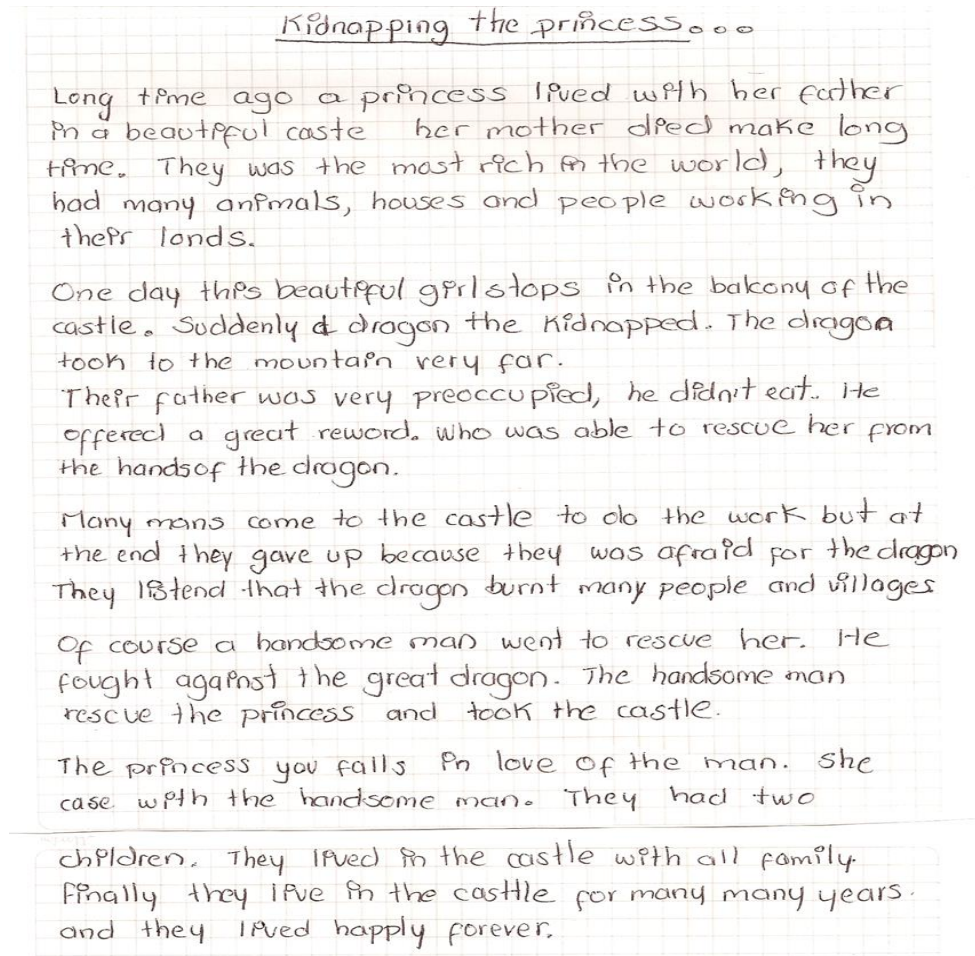 Kidnapping the princess...
Long time ago a princess lived with her father
in a beautiful caste her mother died make long
time. They was the most rich in the world, they
had many animals, houses and people working in
their londs.
One day this beautiful girl stops in the balcony of the
castle. Suddenly a dragon the kidnapped. The dragon
took to the mountain very far.
Their father was very preoccupied, he didn't eat. He
offered a great reword. Who was able to rescue her from
the hands of the dragon.
Many mans come to the castle to do the work but at
the end they gave up because they was afraid for the dragon
They listend that the dragon burnt many people and villages
Of course a handsome man went to rescue her. He
fought against the great dragon. The handsome man
rescue the princess and took the castle.
The princess you falls in love of the man. She
case with the handsome man. They had two
children. They lived in the castle with all family.
Finally they live in the casttle for many many years.
and they lived happly forever.